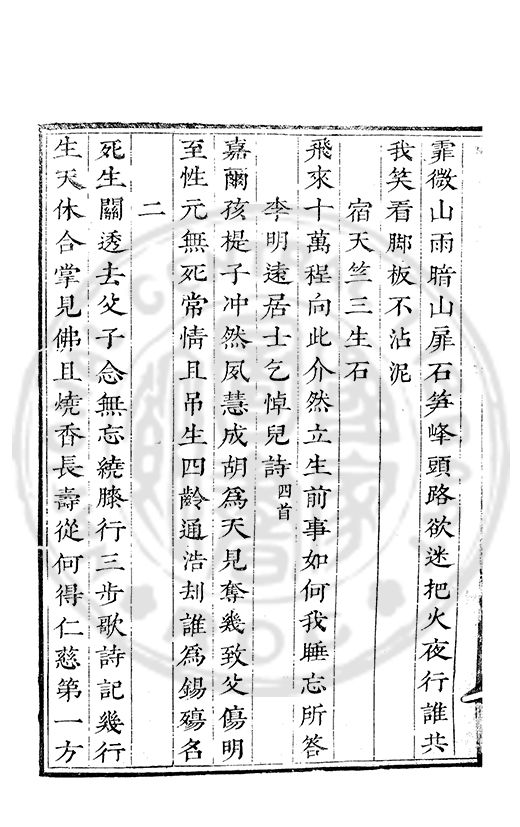 霏微山雨暗山扉石笋峰頭路欲迷把火夜行誰共
我笑看脚板不沾泥
宿天竺三生石
飛來十萬程向此介然立生前事如何我睡忘所答
李明遠居士乞悼兒詩四首
嘉爾孩提子冲然夙慧成胡爲天見奪幾致父傷明
至性元無死常情且吊生四齡通浩刧誰爲錫殤名
二
死生關透去父子念無忘繞膝行三步歌詩記幾行
生天休合掌見佛且燒香長壽從何得仁慈第一方